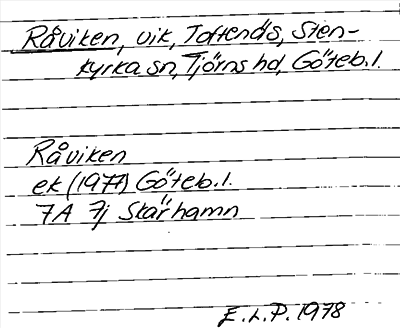 Råviken, vik, Toftenäs, Sten-
kyrka sn, Tjörns hd, Göteb. l.
Råviken
ek (1977) Göteb. l.
7A 7j Skärhamn
E.L.P. 1978